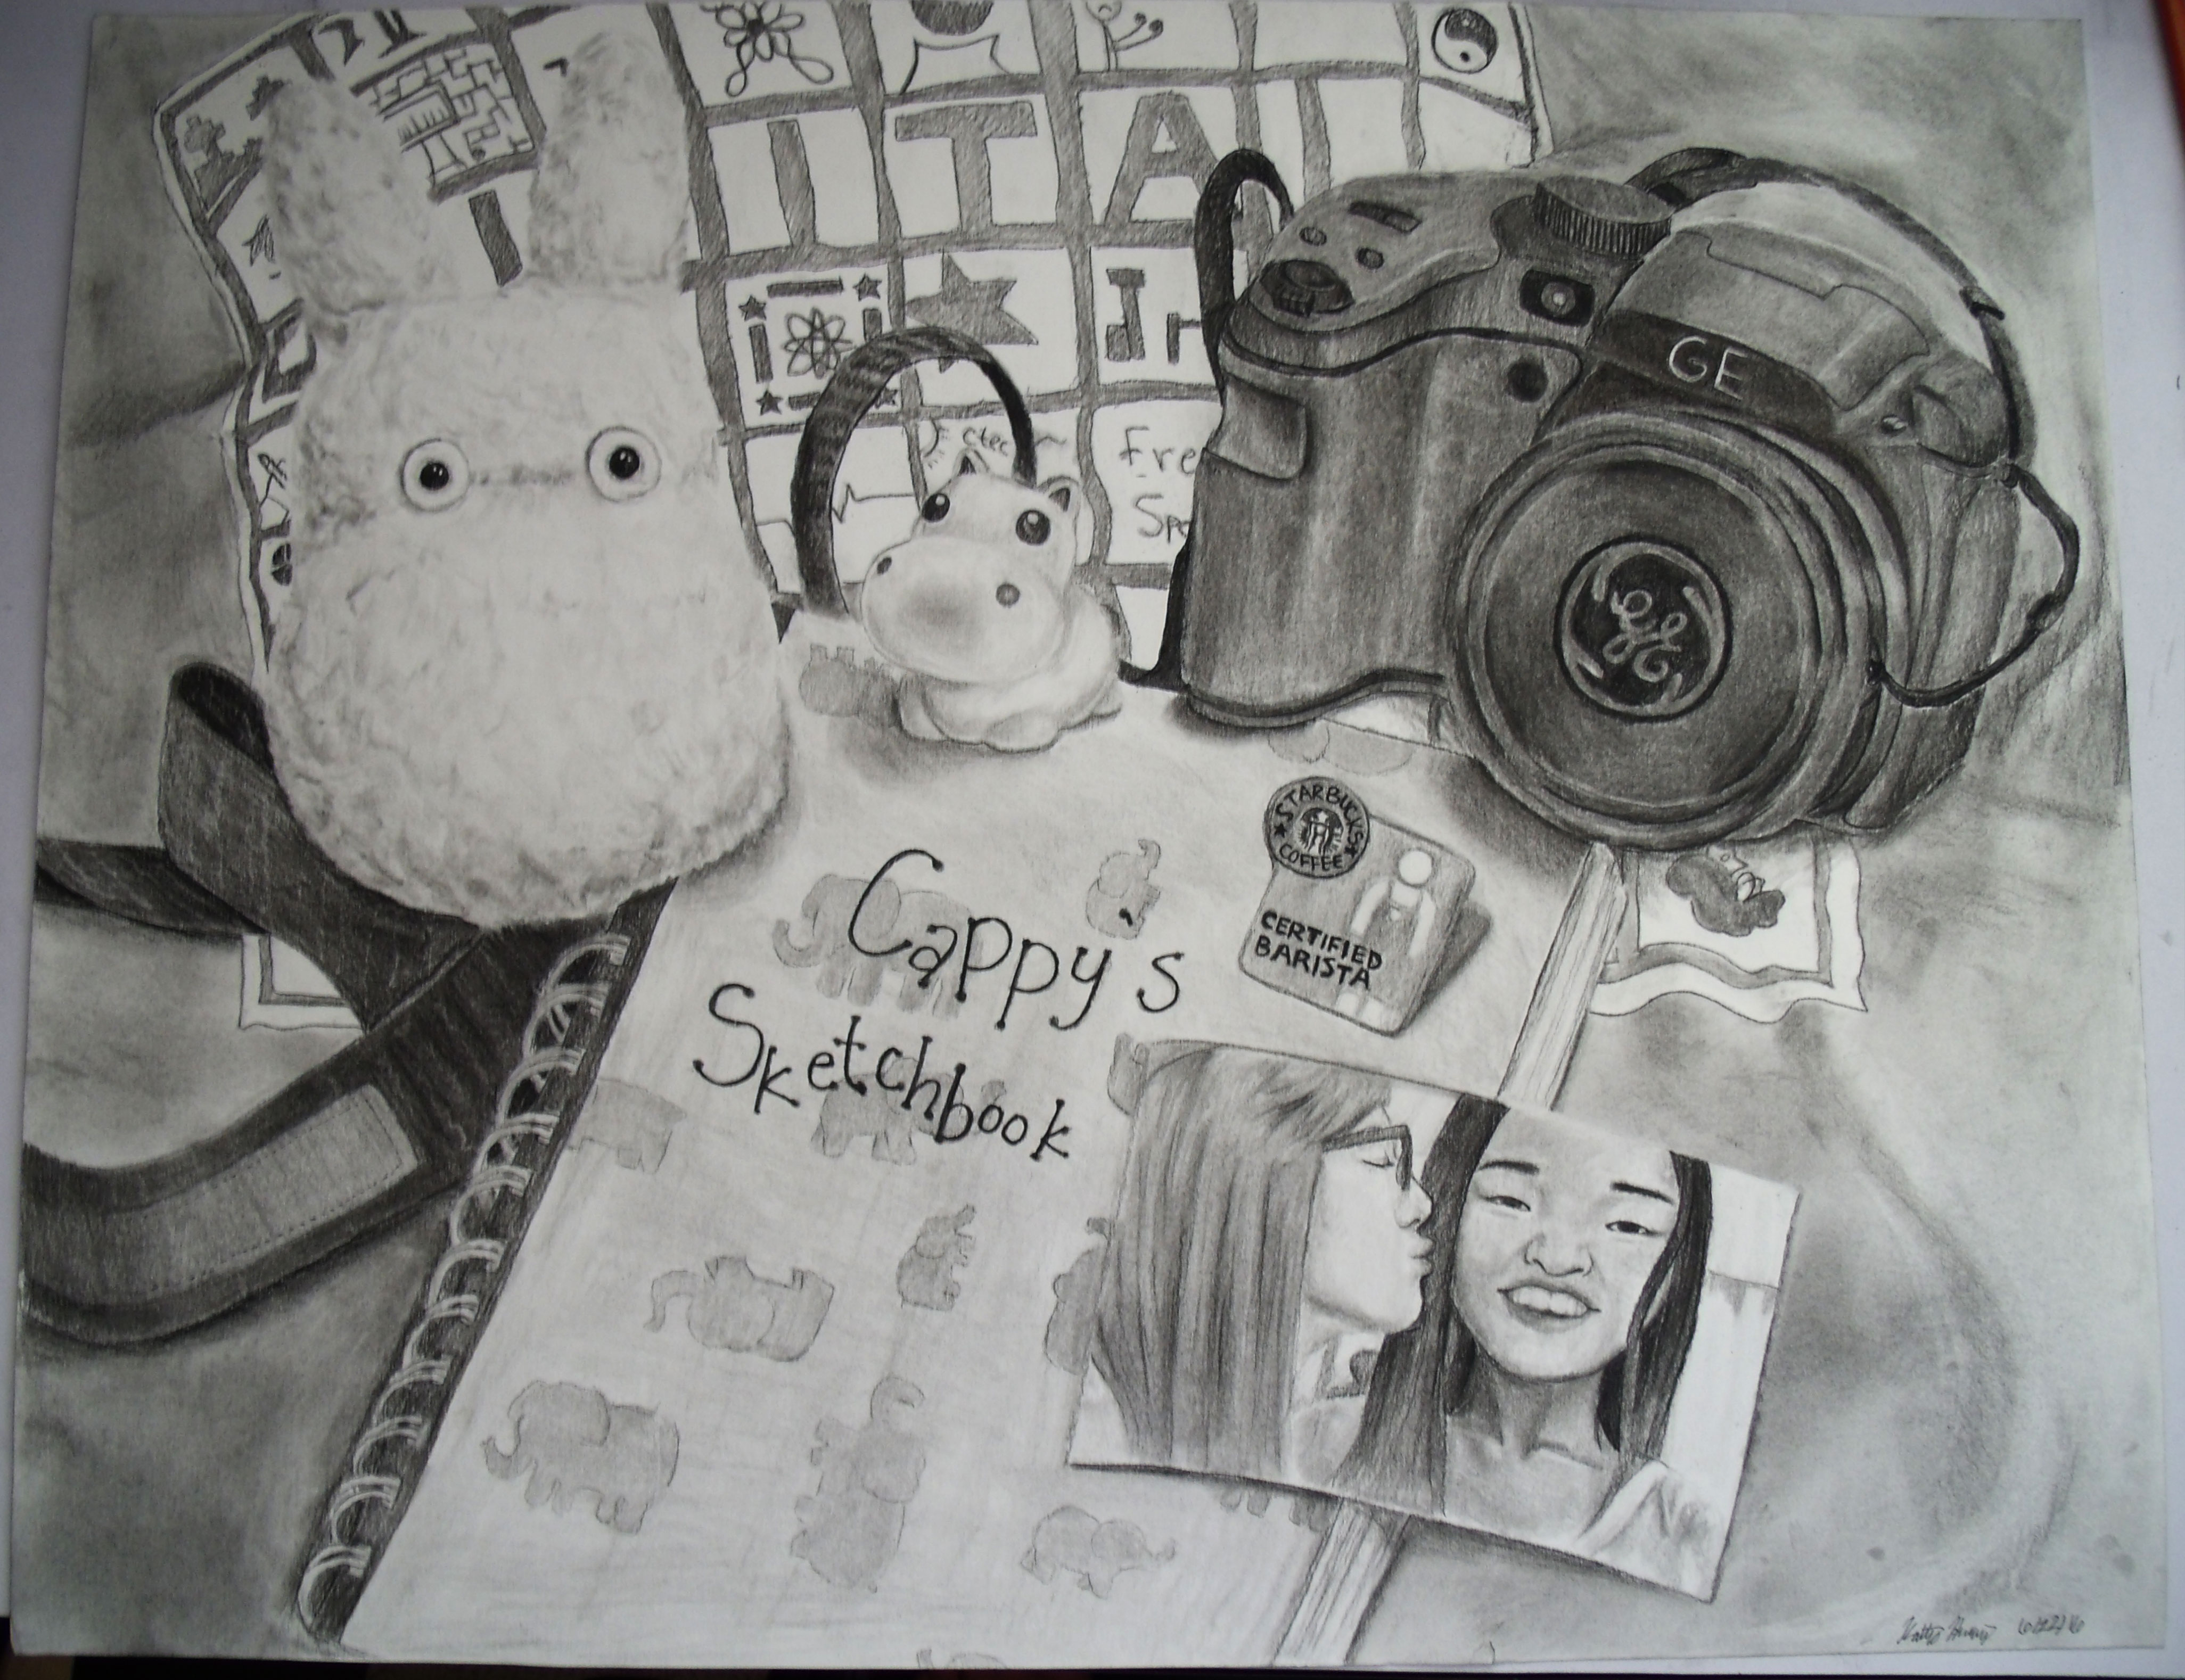 I
I T A
Fre
Spa
GE
GE
STARBUCKS
COFFEE
CERTIFIED
BARISTA
Cappy's
Sketchbook